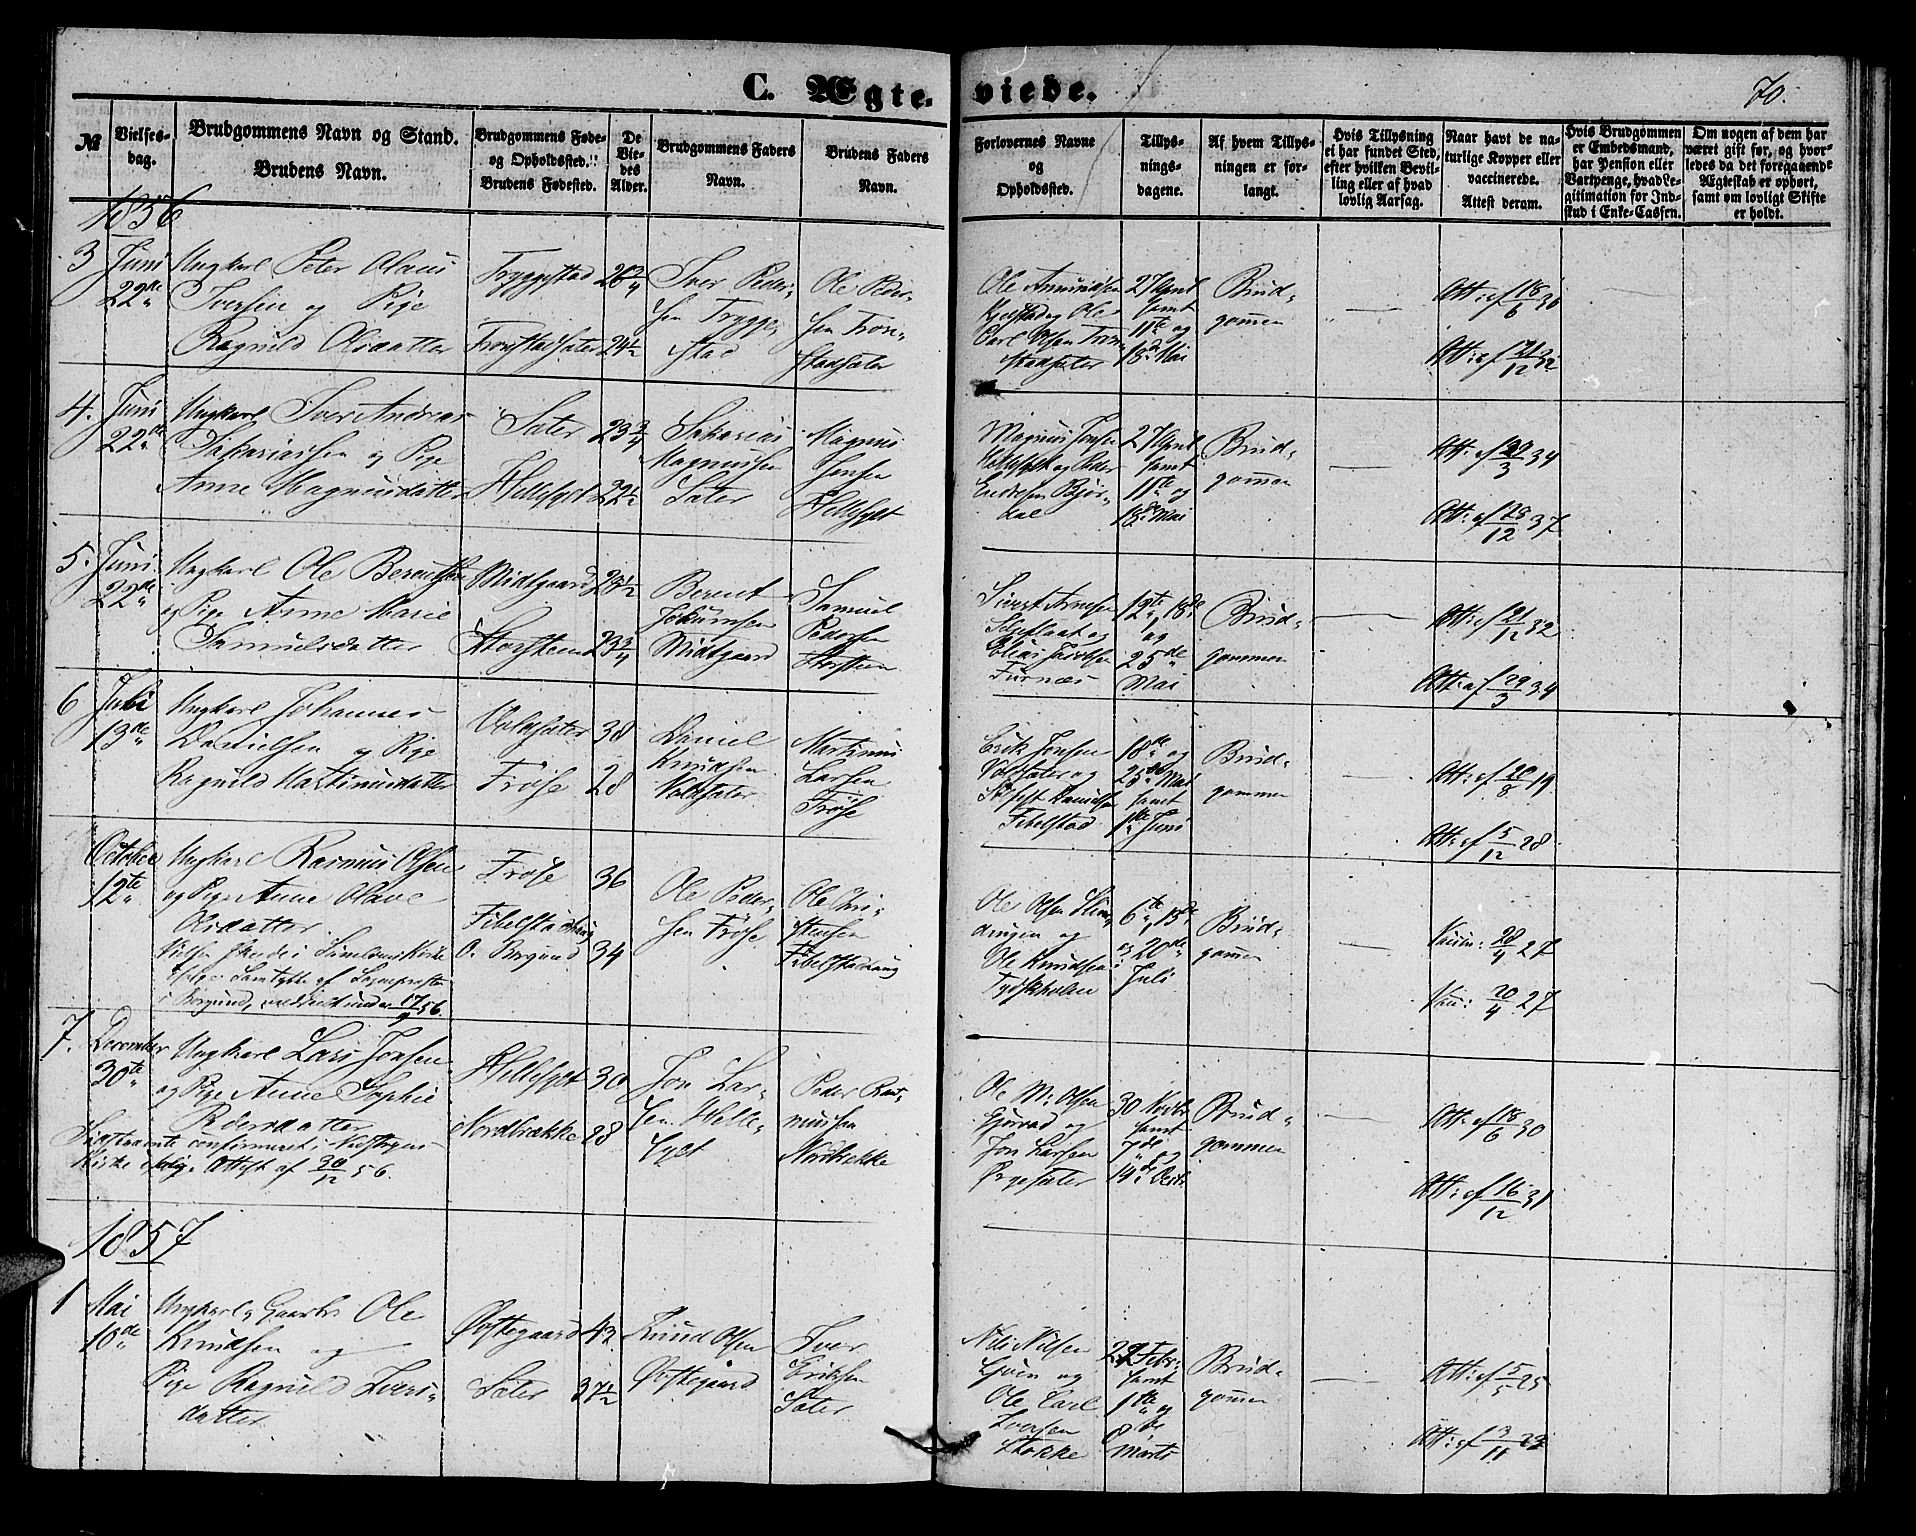 C. Ægte-
viede.
70.
№
Vielses-
dag.
Brudgommens Navn og Stand.
Brudens Navn.
Brudgommens Føde-
og Opholdssted.
Brudens Fødested.
De
Vie-
des
Alder.
Brudgommens Faders
Navn.
Brudens Faders
Navn.
Forlovernes Navne
og
Opholdssted.
Tillys-
nings-
dagene.
Af hvem Tillys-
ningen er for-
langt.
Hvis Tillysning
ei har fundet Sted,
efter hvilken Bevil-
ling eller af hvad
lovlig Aarsag.
Naar havt de na-
turlige Kopper eller
vaccinerede.
Attest derom.
Hvis Brudgommen
er Embedsmand,
har Pension eller
Vartpenge, hvad Le-
gitimation for Ind-
skud i Enke-Cassen.
Om nogen af dem har
været gift før, og hvor-
ledes da det foregaaende
Ægteskab er ophørt,
samt om lovligt Skifte
er holdt.
1856
3
Juni
22de
Ungkarl Peter Olaus
Iversen og Pige
Ragnild Olsdatter
Tryggestad
Tronstadsæter
26 3/4
24 1/2
Iver Peder-
sen Trygge-
stad
Ole Peder-
sen Tron-
stadsæter
Ole Amundsen
og Ole
Carl Olsen Tron-
stadsæter
27 April
samt
11te og
18de Mai
Brud-
gommen
Att: af 18/6 36
Att: af 21/12 32
4.
Juni
22de
Ungkarl Iver Andreas
Sakariassen og Pige
Anne Magnusdatter
Sæter
Hellesylt
23 3/4
32 1/2
Sakarias
Magnussen
Sæter
Magnus
Jensen
Hellesylt
Magnus Jensen
Hellesylt og Peder
Endresen Bjør-
dal
27 April
samt
11te og
18de Mai
Brud-
gommen
Att: af 29/3 34
Att: af 28/12 37
5.
Juni
22de
Ungkarl Ole Berentsen
og Pige Anne Marie
Samuelsdatter
Midtgaard
Korsteen
28 1/2
23 3/4
Berent
Jokumsen
Midtgaard
Samuel
Pedersen
Sivert Arnesen
og
Elias Jacobsen
Furnæs
12te, 18de
og
25de
Mai
Brud-
gommen
Att: af 21/12 32
Att: af 29/3 34
6
Juli
13de
Ungkarl Johannes
Danielsen og Pige
Ragnild Martinusdatter
Voldsæter
Frøse
38
28
Daniel
Knudsen
Voldsæter
Martinus
Larsen
Frøse
Erik Jonsen
Voldsæter og
Danielsen
Fibelstad
18de og
25de Mai
samt
1ste Juni
Brud-
gommen
Att: af 20/8 19
Att: af 5/12 28
October
12te
Ungkarl Rasmus Olsen
og Pige Anne Olave
Olsdatter
Vielsen skeede i Kirke
ifølge Samtykke af Sognepræsten
i Borgund, 17/9 56.
Frøse
Fibelstadhaug
o. Borgund
36
34
Ole Peder-
sen Frøse
Ole Chri-
stensen
Fibelstadhaug
Ole Olsen
og
Ole Knudsen
Tydskholm
6te, 13de
og 20de
Juli
Brud-
gommen
Vaccin: 28/4 27
Vac: 20/4 27
7.
December
30te
Ungkarl Lars Jonsen
og Pige Anne Sophie
Pedersdatter
confirmeret i
Kirke ifølge Attest af 30/12 56.
Hellesylt
Nordbrække
30
28
Jon Lar-
sen Helle-
sylt
Peder Ras-
mussen
Nordbrække
Ole M. Olsen
og
Jon Larsen
30 Novbr
samt
7de og
14de Decbr
Brud-
gommen
Att: af 18/6 30
Att: af 16/12 31
1857
1
Mai
10de
Ungkarl, Gaardbr Ole
Knudsen og
Pige Ragnild Ivers-
datter
Øvstegaard
Sæter
42
37 1/2
Knud Olsen
Øvstegaard
Iver
Eriksen
Sæter
Nils Nilsen
og
Ole Carl
Iversen
Stokke
22 Febr:
samt
1ste og
8de
Marts
Brud-
gommen
Att: af 5/5 25
Att: af 3/11 23